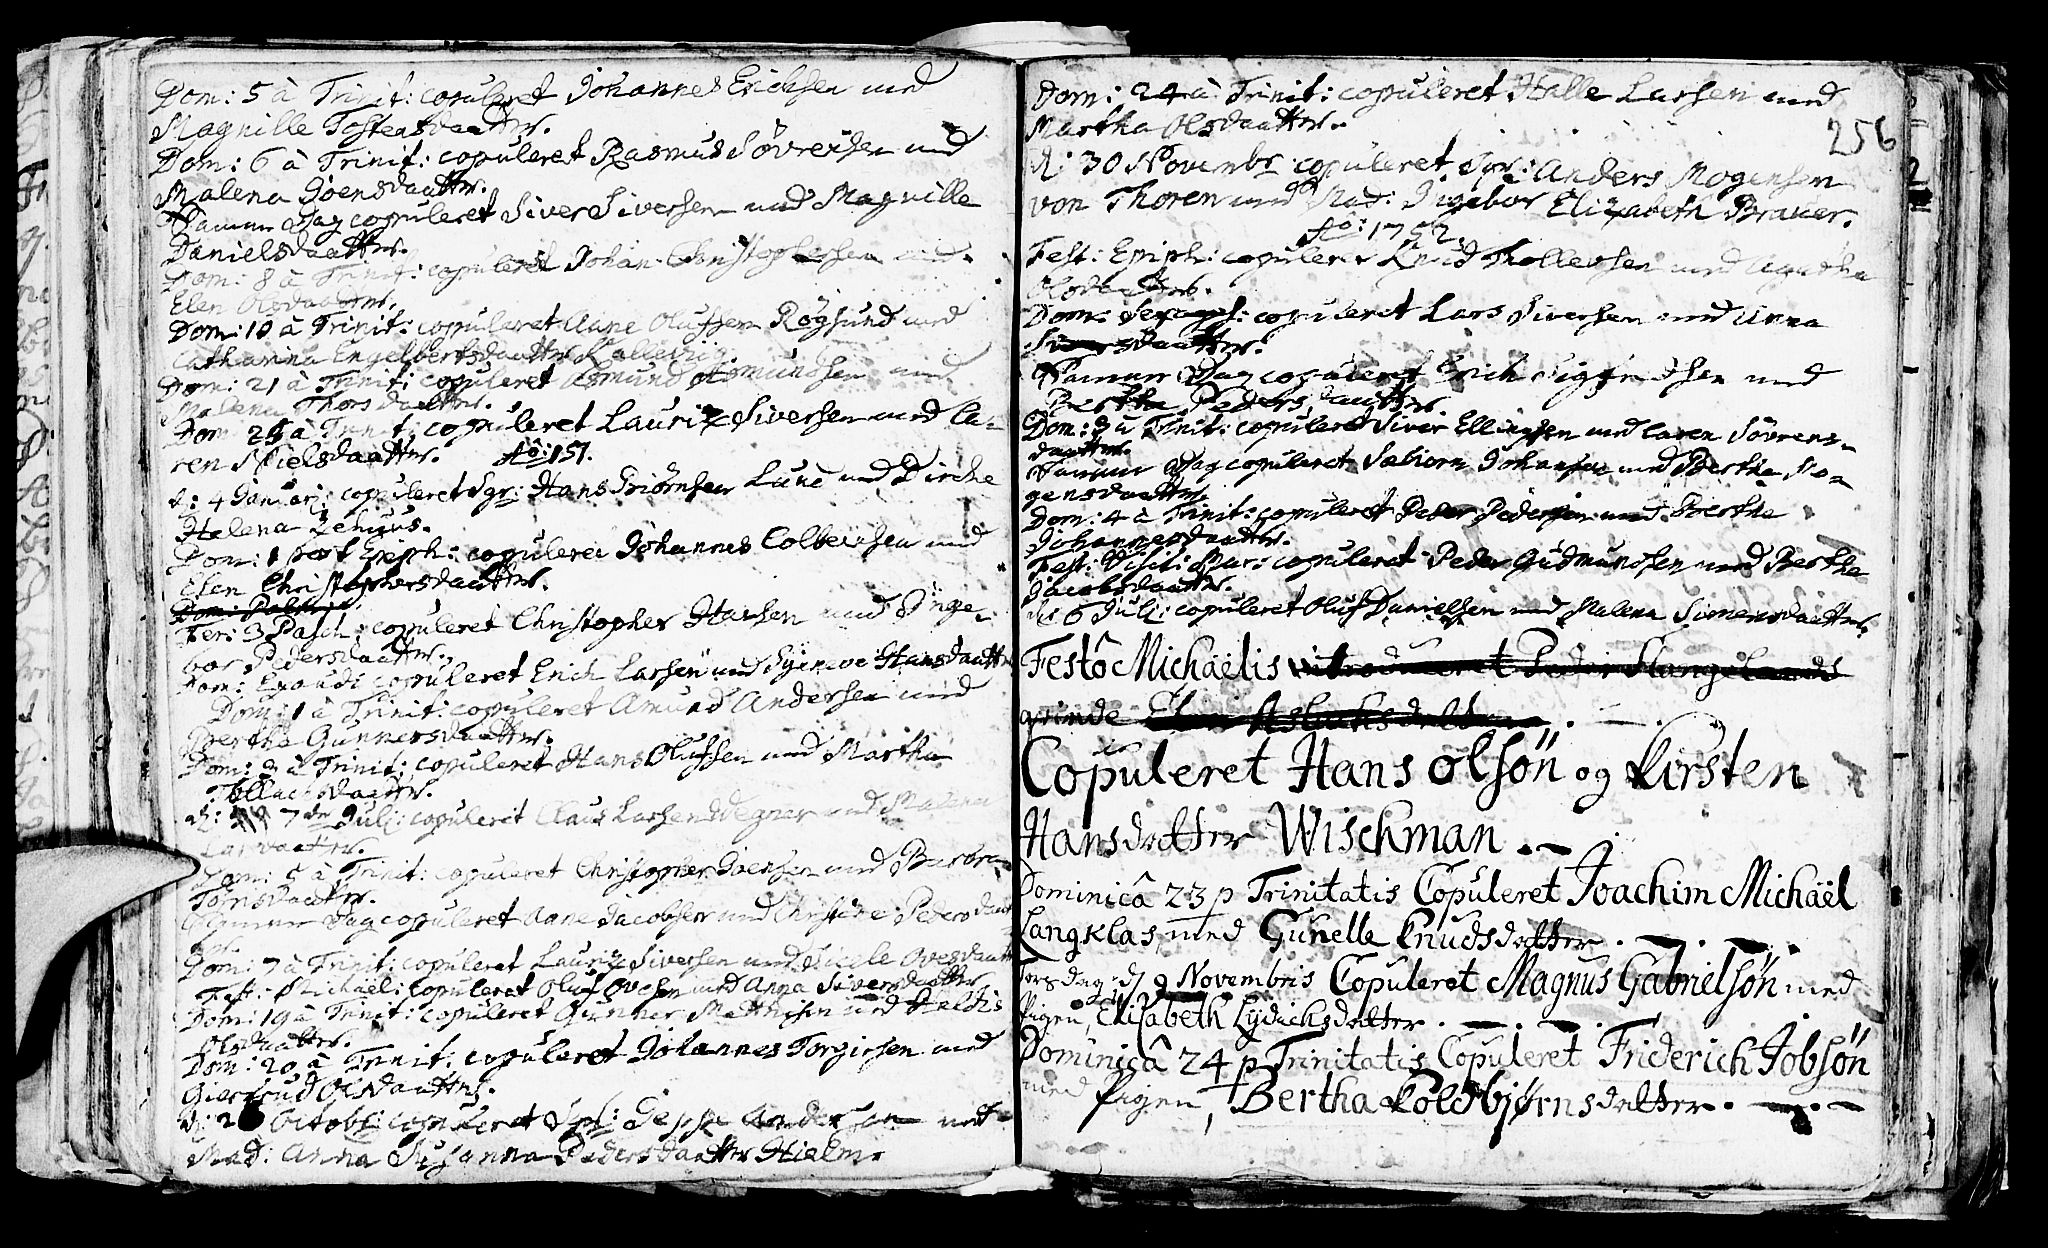 Dom: 5 à Trinit: copuleret Johannes Erichsen med
Magnille Tostensdaatter.
Dom: 6 à Trinit: copuleret Rasmus Sövrensen med
Malena Joensdaatter.
Samme Dag copuleret Siver Siversen med Magnille
Danielsdaatter.
Dom: 8 à Trinit: copuleret Johan Christophersen med
Elen Olsdaatter.
Dom: 10 à Trinit: copuleret Aane Olufsen Rögsund med
Catharina Engelbertsdaatter Kallevig.
Dom: 21 à Trinit: copuleret Asmund Asmundsen med
Malena Thorsdaatter.
Dom 24 à Trinit: copuleret Lauritz Siversen med Ca-
ren Nielsdaatter. Aô: 151.
d: 4 Januarj: copuleret Sgr: Hans Briörnsen Lund med Dirche
Helena
Dom: 1 post Epiph: copuleret Johannes Colbeinsen med
Elen Christophersdaatter.
Dom: Palm
Fer: 3 Pasch: copuleret Christopher Hansen med Inge-
bor Pedersdaatter.
Dom: Exaudi copuleret Erich Larsen med Synneve Hansdaatter
Dom: 1 à Trinit: copuleret Amund Andersen med
Berthe Gunnersdaatter.
Dom: 2 à Trinit: copuleret Hans Olufsen med Martha
Tollachsdaatter.
d: 7de Julj: copuleret Claus Larsen Wegner med Malena
Larsdaatter.
Dom: 5 à Trinit: copuleret Christopher Joensen med Barbra
Törnsdaatter.
Samme Dag copuleret Aane Jacobsen med Christine Pedersdaat
ter.
Dom: 7 à Trinit: copuleret Lauritz Siversen med Sicele Ovesdaatter
Fest: Michael: copuleret Oluf Ovesen med Anna Siversdaatter
Dom: 19 à Trinit: copuleret Gunner Mattisen med Heldis
Olsdaatter.
Dom: 20 à Trinit: copuleret Johannes Torgersen med
Giertrud Olsdaatter.
d: 26 Octobr: copuleret Sgl: Jeppe Anderson med
Mad: Anna Susanna Pedersdaatter Hielm.
Dom: 24 à Trinit: copuleret Halle Larsen med
Martha Olsdaatter.
256
d: 30 Novembr copuleret Sgr: Anders Mogensen
von Thoren med Mad: Ingebor Elizabeth Brauer.
Aô: 1752.
Fest: Epiph: copuleret Knud Thollevsen med Agatha
Olsdaatter.
Dom: Septuages: copuleret Lars Siversen med Anna
Siversdaatter.
Samme Dag copuleret Erich Sigfredsen med
Berthe Pedersdaatter
Dom: 3 à Trinit: copuleret Siver Ellingsen med Caren Sövrens-
daatter.
Samme Dag copuleret Sabiorn Johansen med Berthe Mo-
gensdaatter.
Dom: 4 à Trinit: copuleret Peder Pedersen med Berthe
Johannesdaatter.
Fest: Visit: Mar: copuleret Peder Gudmundsen med Berthe
Jacobsdaatter.
d: 6 Julj: copuleret Oluf Danielsen med Malena Simensdaatter.
Festô Michaëlis introduceret Peder Hangelands
qvinde Elen Aslaksdatter
Copuleret Hans olsön og Kirsten
Hansdatter Wischman.
Dominicâ 23 p Trinitatis Copuleret Joachim Michaël
Langklas, med Gunelle Knudsdatter.
Torsdag: d/ 9 Novembris Copuleret Magnus Gabrielsön med
Pigen, Elisabeth Lydichsdatter.
Dominicâ 24 p Trinitatis Copuleret Friderich Jobsön
med Pigen, Bertha Koldbjørnsdatter.